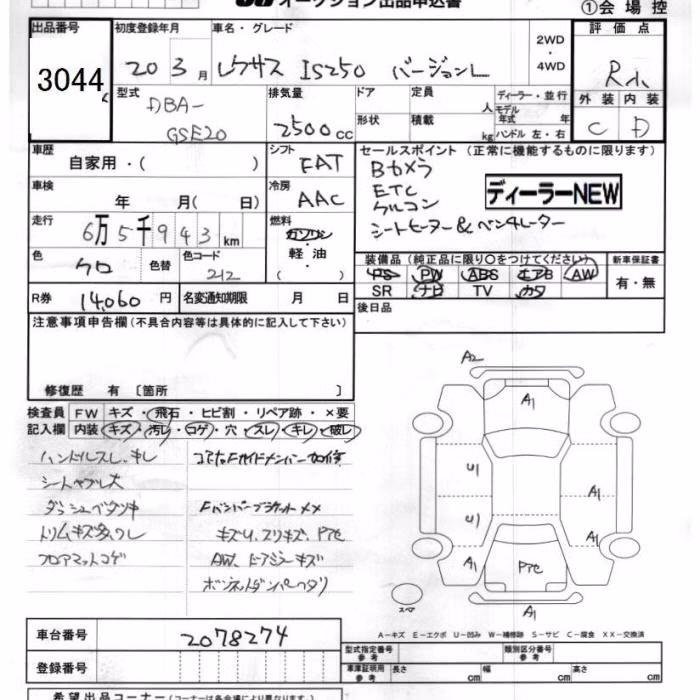 オークション出品申込書
①会場控
出品番号 初度登録年月 車名・グレード 評価点
3044 20 3月 レクサス IS250 バージョンL 2WD・4WD R
型式 排気量 ドア 定員 ディーラー・並行 外装 内装
DBA-GSE20 2500cc 人 モデル年式 年 C D
形状 積載 kg ハンドル 左・右
車歴 シフト セールスポイント (正常に機能するものに限ります)
自家用・( ) FAT Bカメラ
車検 冷房 ETC ディーラーNEW
年 月( 日) AAC クルコン
走行 燃料 シートヒーター&ベンチレーター
6万5千943km ガソリン・軽油 ( )
色 色替 色コード 装備品(純正品に限り○をつけてください) 新車保証書
クロ 212 PS PW ABS エアB AW 有・無
SR ナビ TV カワ
R券 14,060円 名変通知期限 月 日 後日品
注意事項申告欄(不具合内容等は具体的に記入して下さい)
修復歴 有〔箇所 〕
検査員 FW キズ・飛石・ヒビ割・リペア跡・×要
記入欄 内装 キズ・汚レ・コゲ・穴・スレ・キレ・破レ
ハンドルスレ、キレ
シートヤブレ大
フロアマットコゲ
AW、ドアミラーキズ
A2
A1
U1
A1
U1
A1
A1
A1
スペア
A1
A-キズ E-エクボ U-凹み W-補修跡 S-サビ C-腐食 XX-交換済
車台番号 2078274
登録番号
型式指定番号 参考 類別区分番号 参考
車庫証明用 参考 長さ cm 幅 cm 高さ cm
希望出品コーナー